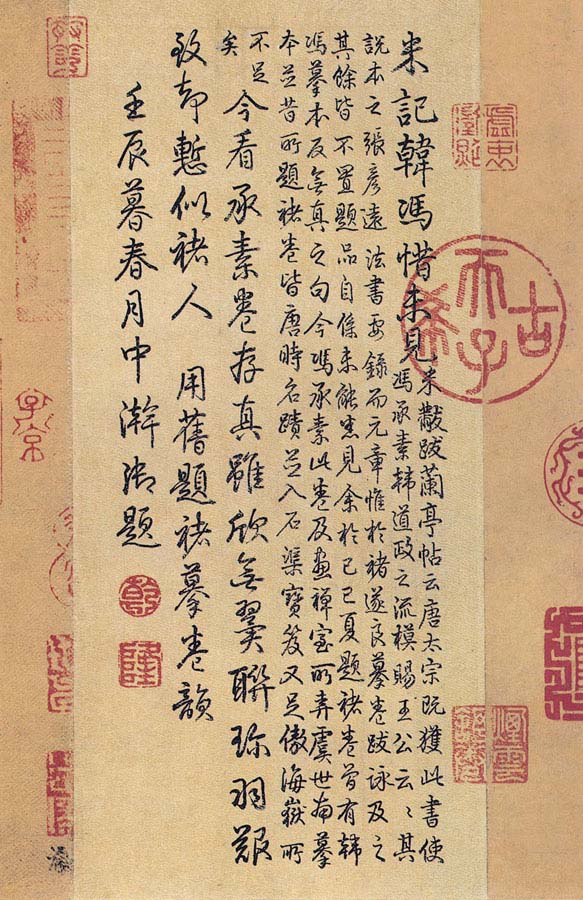 米記韓馮惜未見
米黻跋蘭亭帖云唐太宗既獲此書使
馮承素韓道政之流模賜王公云〻其
說本之張彥遠法書要錄而元章惟於褚遂良摹卷跋詠及之
其餘皆不置題品自係未能悉見余於己巳夏題褚卷曾有韓
馮摹本反無真之句今馮承素此卷及畫禪室所弆虞世南摹
本並昔所題褚卷皆唐時名蹟並入石渠寶笈又足傲海嶽所
不足
矣
今看承素卷存真雖欣無翼聯珎羽艱
致却慙似褚人 用舊題褚摹卷韻
壬辰暮春月中澣御題
乾
隆
古希天子